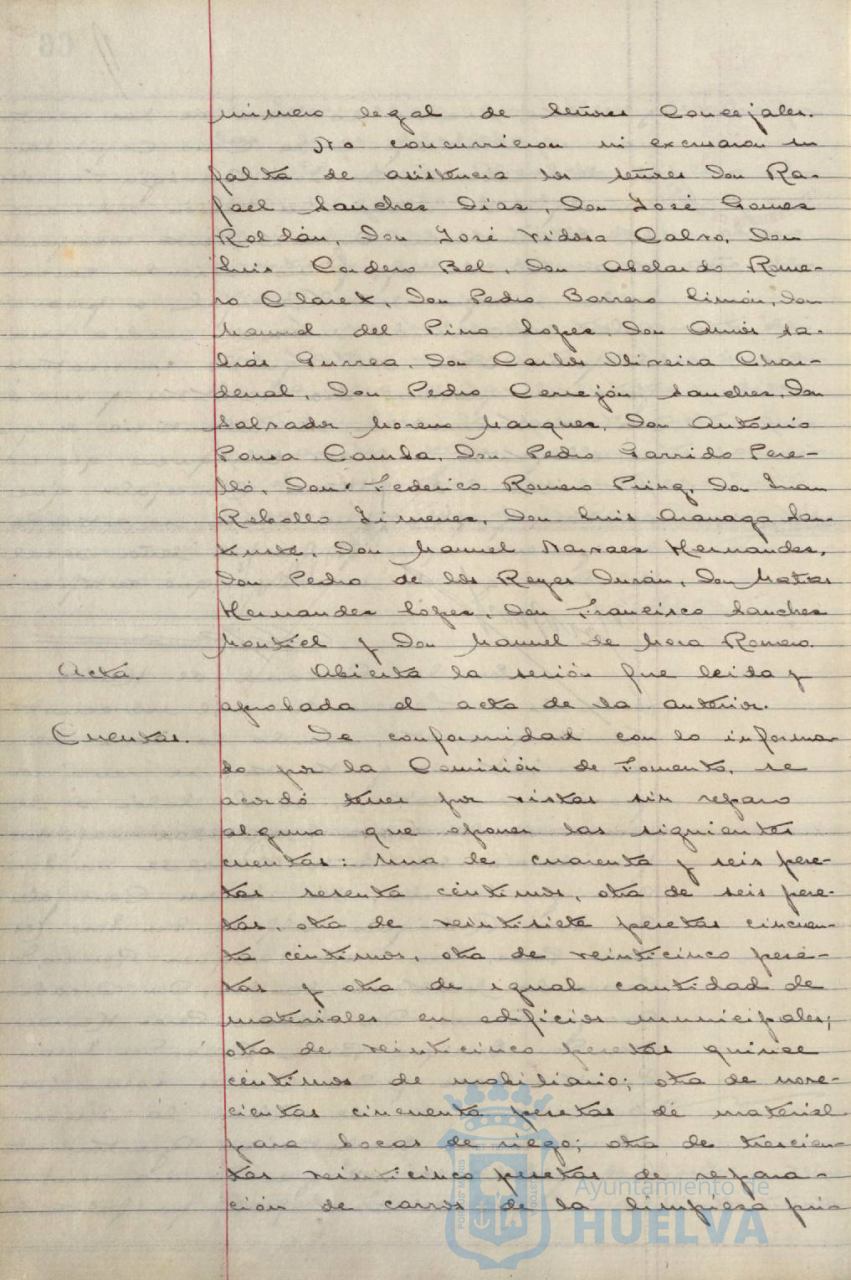 número legal de señores Concejales.
No concurrieron ni excusaron su
falta de asistencia los señores Don Ra-
fael Sanchez Díaz, Don José Gomez
Roldán, Don José Vidosa Calvo, Don
Luis Cordero Bel, Don Abelardo Rome-
ro Claret, Don Pedro Borrero Limón, Don
Manuel del Pino Lopez, Don Amós Sa-
brás Gurrea, Don Carlos Oliveira Char-
denal, Don Pedro Cerrejón Sanchez, Don
Salvador Moreno Marquez, Don Antonio
Pousa Camba, Don Pedro Garrido Pere-
lló, Don Federico Romero Puig, Don Juan
Rebollo Jimenez, Don Luis Aranaga San-
Don Manuel Narvaez Hernandez,
Don Pedro de los Reyes Durán, Don Matias
Hernandez Lopez, Don Francisco Sanchez
Montiel y Don Manuel de Mora Romero.
Acta. Abierta la sesión fue leida y
aprobada el acta de la anterior.
Cuentas. De conformidad con lo informa-
do por la Comisión de Fomento, se
acordó tener por vistas sin reparo
alguno que oponer las siguientes
cuentas: Una de cuarenta y seis pese-
tas sesenta céntimos, otra de seis pese-
tas, otra de veintisiete pesetas cincuen-
ta céntimos, otra de veinticinco pese-
tas y otra de igual cantidad de
materiales en edificios municipales;
otra de veinticinco pesetas quince
céntimos de mobiliario; otra de nove-
cientas cincuenta pesetas de material
para bocas de riego; otra de trescien-
tas veinticinco pesetas de repara-
ción de carros de la limpieza pú-
Ayuntamiento de
HUELVA